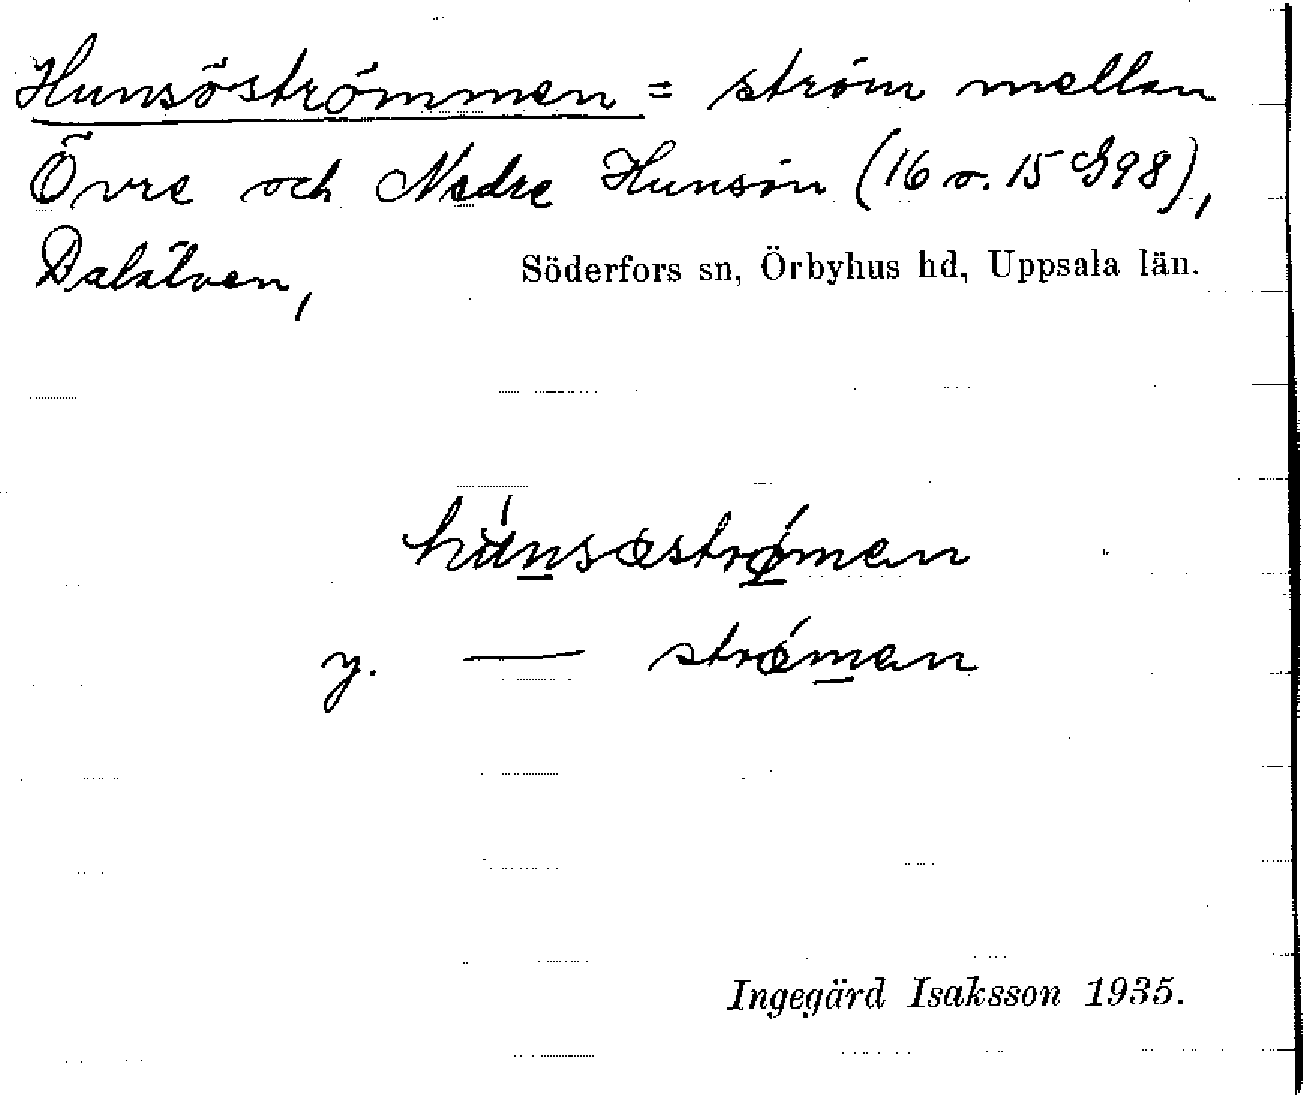 Hunsöströmmen = ström mellan
Övre och Nedre Hunsön (16 o. 15 G98),
Dalälven, Söderfors sn, Örbyhus hd, Uppsala län.
y. —
Ingegärd Isaksson 1935.